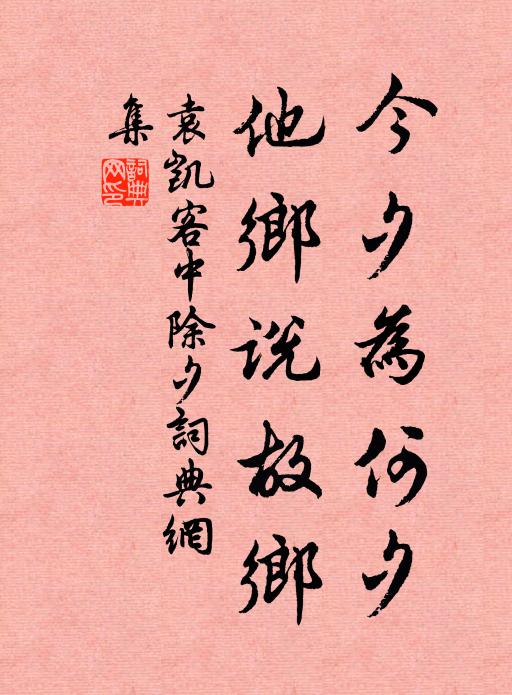 今夕為何夕
他鄉説故鄉
袁凱客中除夕詞典網
集
詞典
网印